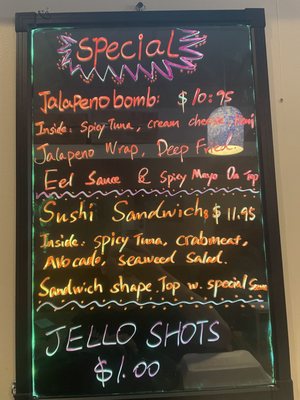 Special
Jalapenobomb: $10.95
Inside: Spicy Tuna, cream cheese,
Jalapeno Wrap, Deep Fried.
Eel Sauce & Spicy Mayo On Top
Sushi Sandwichs $11.95
Inside. spicy Tuna, crabmeat,
Avocado, seaweed Salad.
Sandwich shape. Top w. special Sauce
JELLO SHOTS
$1.00